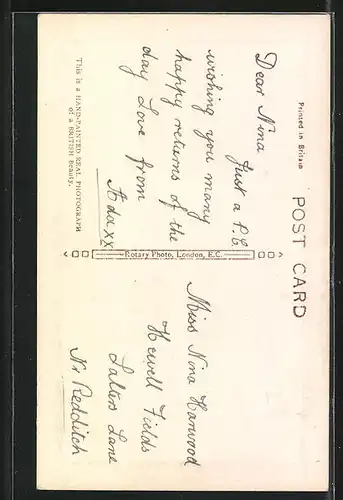 Printed in Britain
POST CARD
Dear Nina
Just a P.C.
wishing you many
happy returns of the
day Love from
Ada xx
This is a HAND-PAINTED REAL PHOTOGRAPH
of a BRITISH Beauty.
Rotary Photo, London, E.C.
Miss Nina Harwood
Hewell Fields
Salters Lane
Nr Redditch